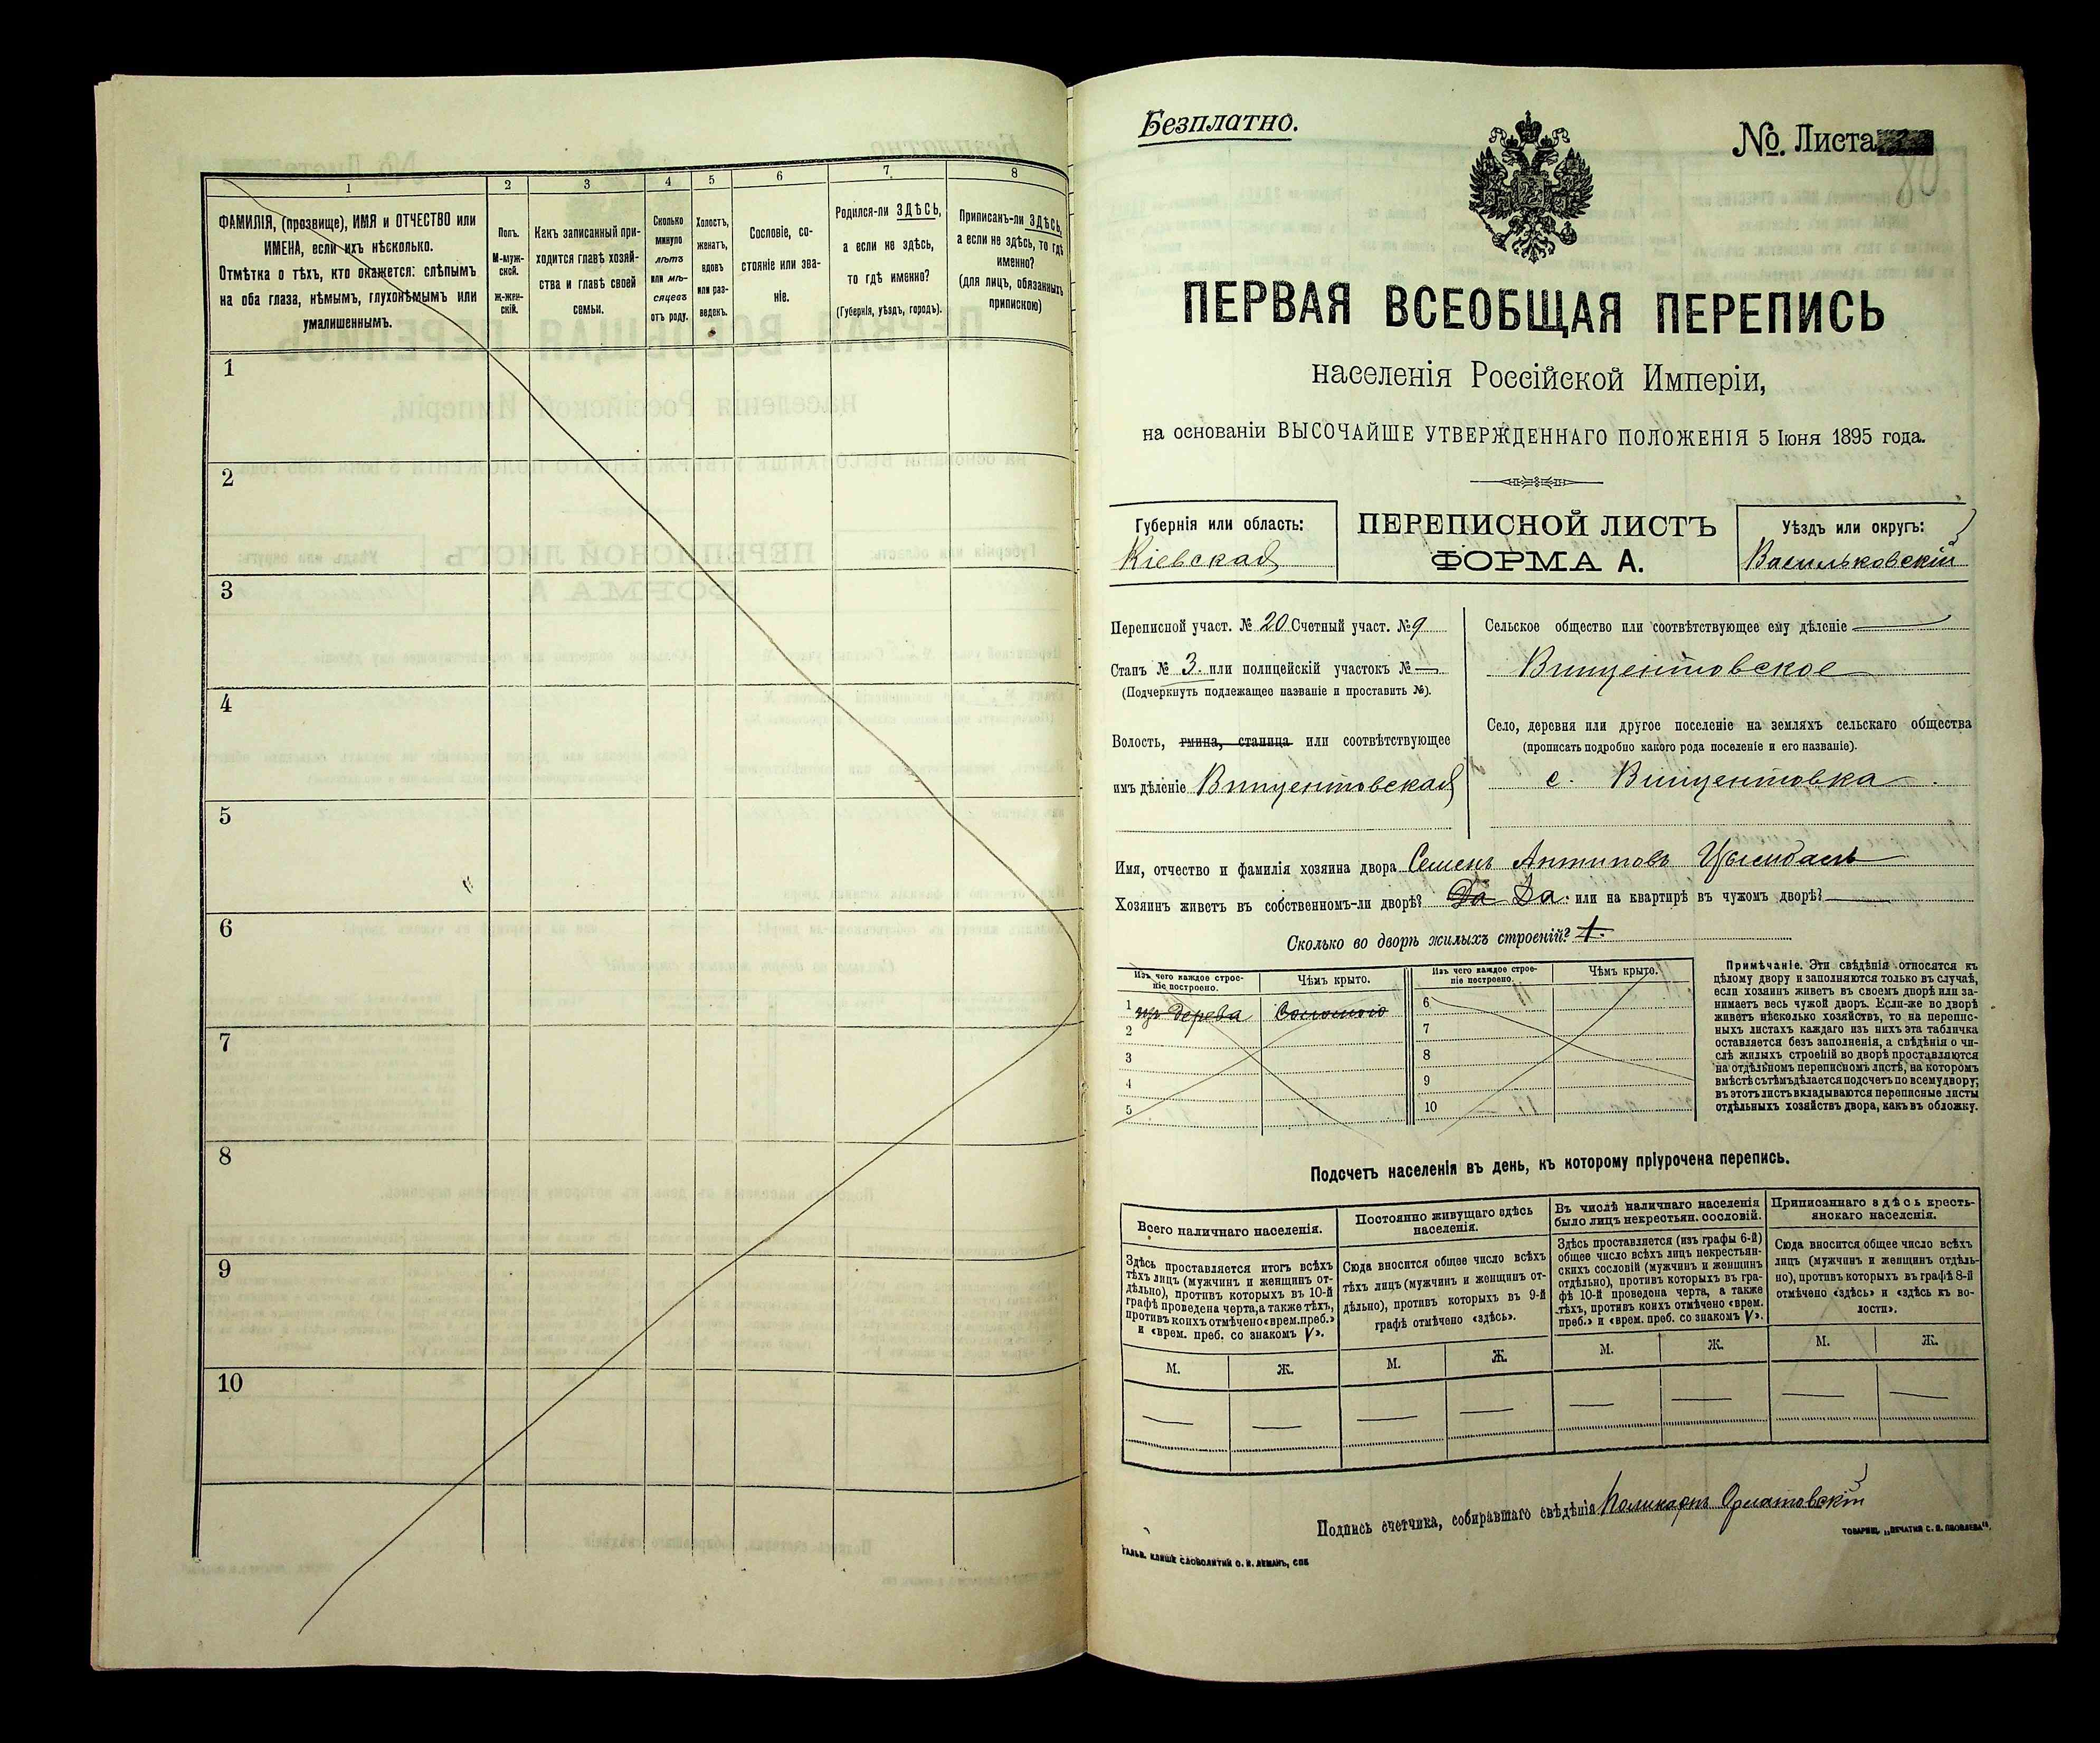 1 2 3 4 5 6 7 8
ФАМИЛІЯ, (прозвище), ИМЯ и ОТЧЕСТВО или
ИМЕНА, если ихъ нѣсколько.
Отмѣтка о тѣхъ, кто окажется: слѣпымъ
на оба глаза, нѣмымъ, глухонѣмымъ или
умалишеннымъ.
Полъ.
М-муж-
ской.
Ж-жен-
скій.
Какъ записанный при-
ходится главѣ хозяй-
ства и главѣ своей
семьи.
Сколько
минуло
лѣтъ
или мѣ-
сяцевъ
отъ роду.
Холостъ,
женатъ,
вдовъ
или раз-
веденъ.
Сословіе, со-
стояніе или зва-
ніе.
Родился-ли ЗДѢСЬ,
а если не здѣсь,
то гдѣ именно?
(Губернія, уѣздъ, городъ).
Приписанъ-ли ЗДѢСЬ,
а если не здѣсь, то гдѣ
именно?
(для лицъ, обязанныхъ
припискою)
1
2
3
4
5
6
7
8
9
10
Безплатно.
№. Листа
80
ПЕРВАЯ ВСЕОБЩАЯ ПЕРЕПИСЬ
населенія Россійской Имперіи,
на основаніи ВЫСОЧАЙШЕ УТВЕРЖДЕННАГО ПОЛОЖЕНІЯ 5 Іюня 1895 года.
Губернія или область:
Кіевская
ПЕРЕПИСНОЙ ЛИСТЪ
ФОРМА А.
Уѣздъ или округъ:
Васильковскій
Переписной участ. № 20 Счетный участ. № 9
Станъ № 3. или полицейскій участокъ № —
(Подчеркнуть подлежащее названіе и проставить №).
Волость, гмина, станица или соотвѣтствующее
имъ дѣленіе Винцентовская
Сельское общество или соотвѣтствующее ему дѣленіе
Винцентовское
Село, деревня или другое поселеніе на земляхъ сельскаго общества
(прописать подробно какого рода поселеніе и его названіе).
с. Винцентовка
Имя, отчество и фамилія хозяина двора Семенъ Антиповъ Цымбалъ
Хозяинъ живетъ въ собственномъ-ли дворѣ? Да Да. или на квартирѣ въ чужомъ дворѣ? —
Сколько во дворѣ жилыхъ строеній? 1.
Изъ чего каждое строе-
ніе построено.
Чѣмъ крыто.
Изъ чего каждое строе-
ніе построено.
Чѣмъ крыто.
1 изъ дерева Соломою
2
3
4
5
6
7
8
9
10
Примѣчаніе. Эти свѣдѣнія относятся къ
цѣлому двору и заполняются только въ случаѣ,
если хозяинъ живетъ въ своемъ дворѣ или за-
нимаетъ весь чужой дворъ. Если-же во дворѣ
живетъ нѣсколько хозяйствъ, то на перепис-
ныхъ листахъ каждаго изъ нихъ эта табличка
оставляется безъ заполненія, а свѣдѣнія о чи-
слѣ жилыхъ строеній во дворѣ проставляются
на отдѣльномъ переписномъ листѣ, на которомъ
вмѣстѣ съ тѣмъ дѣлается подсчетъ по всему двору;
въ этотъ листъ вкладываются переписные листы
отдѣльныхъ хозяйствъ двора, какъ въ обложку.
Подсчетъ населенія въ день, къ которому пріурочена перепись.
Всего наличнаго населенія.
Здѣсь проставляется итогъ всѣхъ
тѣхъ лицъ (мужчинъ и женщинъ от-
дѣльно), противъ которыхъ въ 10-й
графѣ проведена черта, а также тѣхъ,
противъ коихъ отмѣчено «врем. преб.»
и «врем. преб. со знакомъ V».
М. Ж.
Постоянно живущаго здѣсь
населенія.
Сюда вносится общее число всѣхъ
тѣхъ лицъ (мужчинъ и женщинъ от-
дѣльно), противъ которыхъ въ 9-й
графѣ отмѣчено «здѣсь».
М. Ж.
Въ числѣ наличнаго населенія
было лицъ некрестьян. сословій.
Здѣсь проставляется (изъ графы 6-й)
общее число всѣхъ лицъ некрестьян-
скихъ сословій (мужчинъ и женщинъ
отдѣльно), противъ которыхъ въ гра-
фѣ 10-й проведена черта, а также
тѣхъ, противъ коихъ отмѣчено «врем.
преб.» и «врем. преб. со знакомъ V».
М. Ж.
Приписаннаго здѣсь кресть-
янскаго населенія.
Сюда вносится общее число всѣхъ
лицъ (мужчинъ и женщинъ отдѣль-
но), противъ которыхъ въ графѣ 8-й
отмѣчено «здѣсь» и «здѣсь къ во-
лости».
М. Ж.
— — — — — — — —
Подпись счетчика, собиравшаго свѣдѣнія Поликарпъ
ГАЛЬВ. КЛИШЕ СЛОВОЛИТНИ О. И. ЛЕМАНЪ, СПБ
ТОВАРИЩ. „ПЕЧАТНЯ С. П. ЯКОВЛЕВА“.